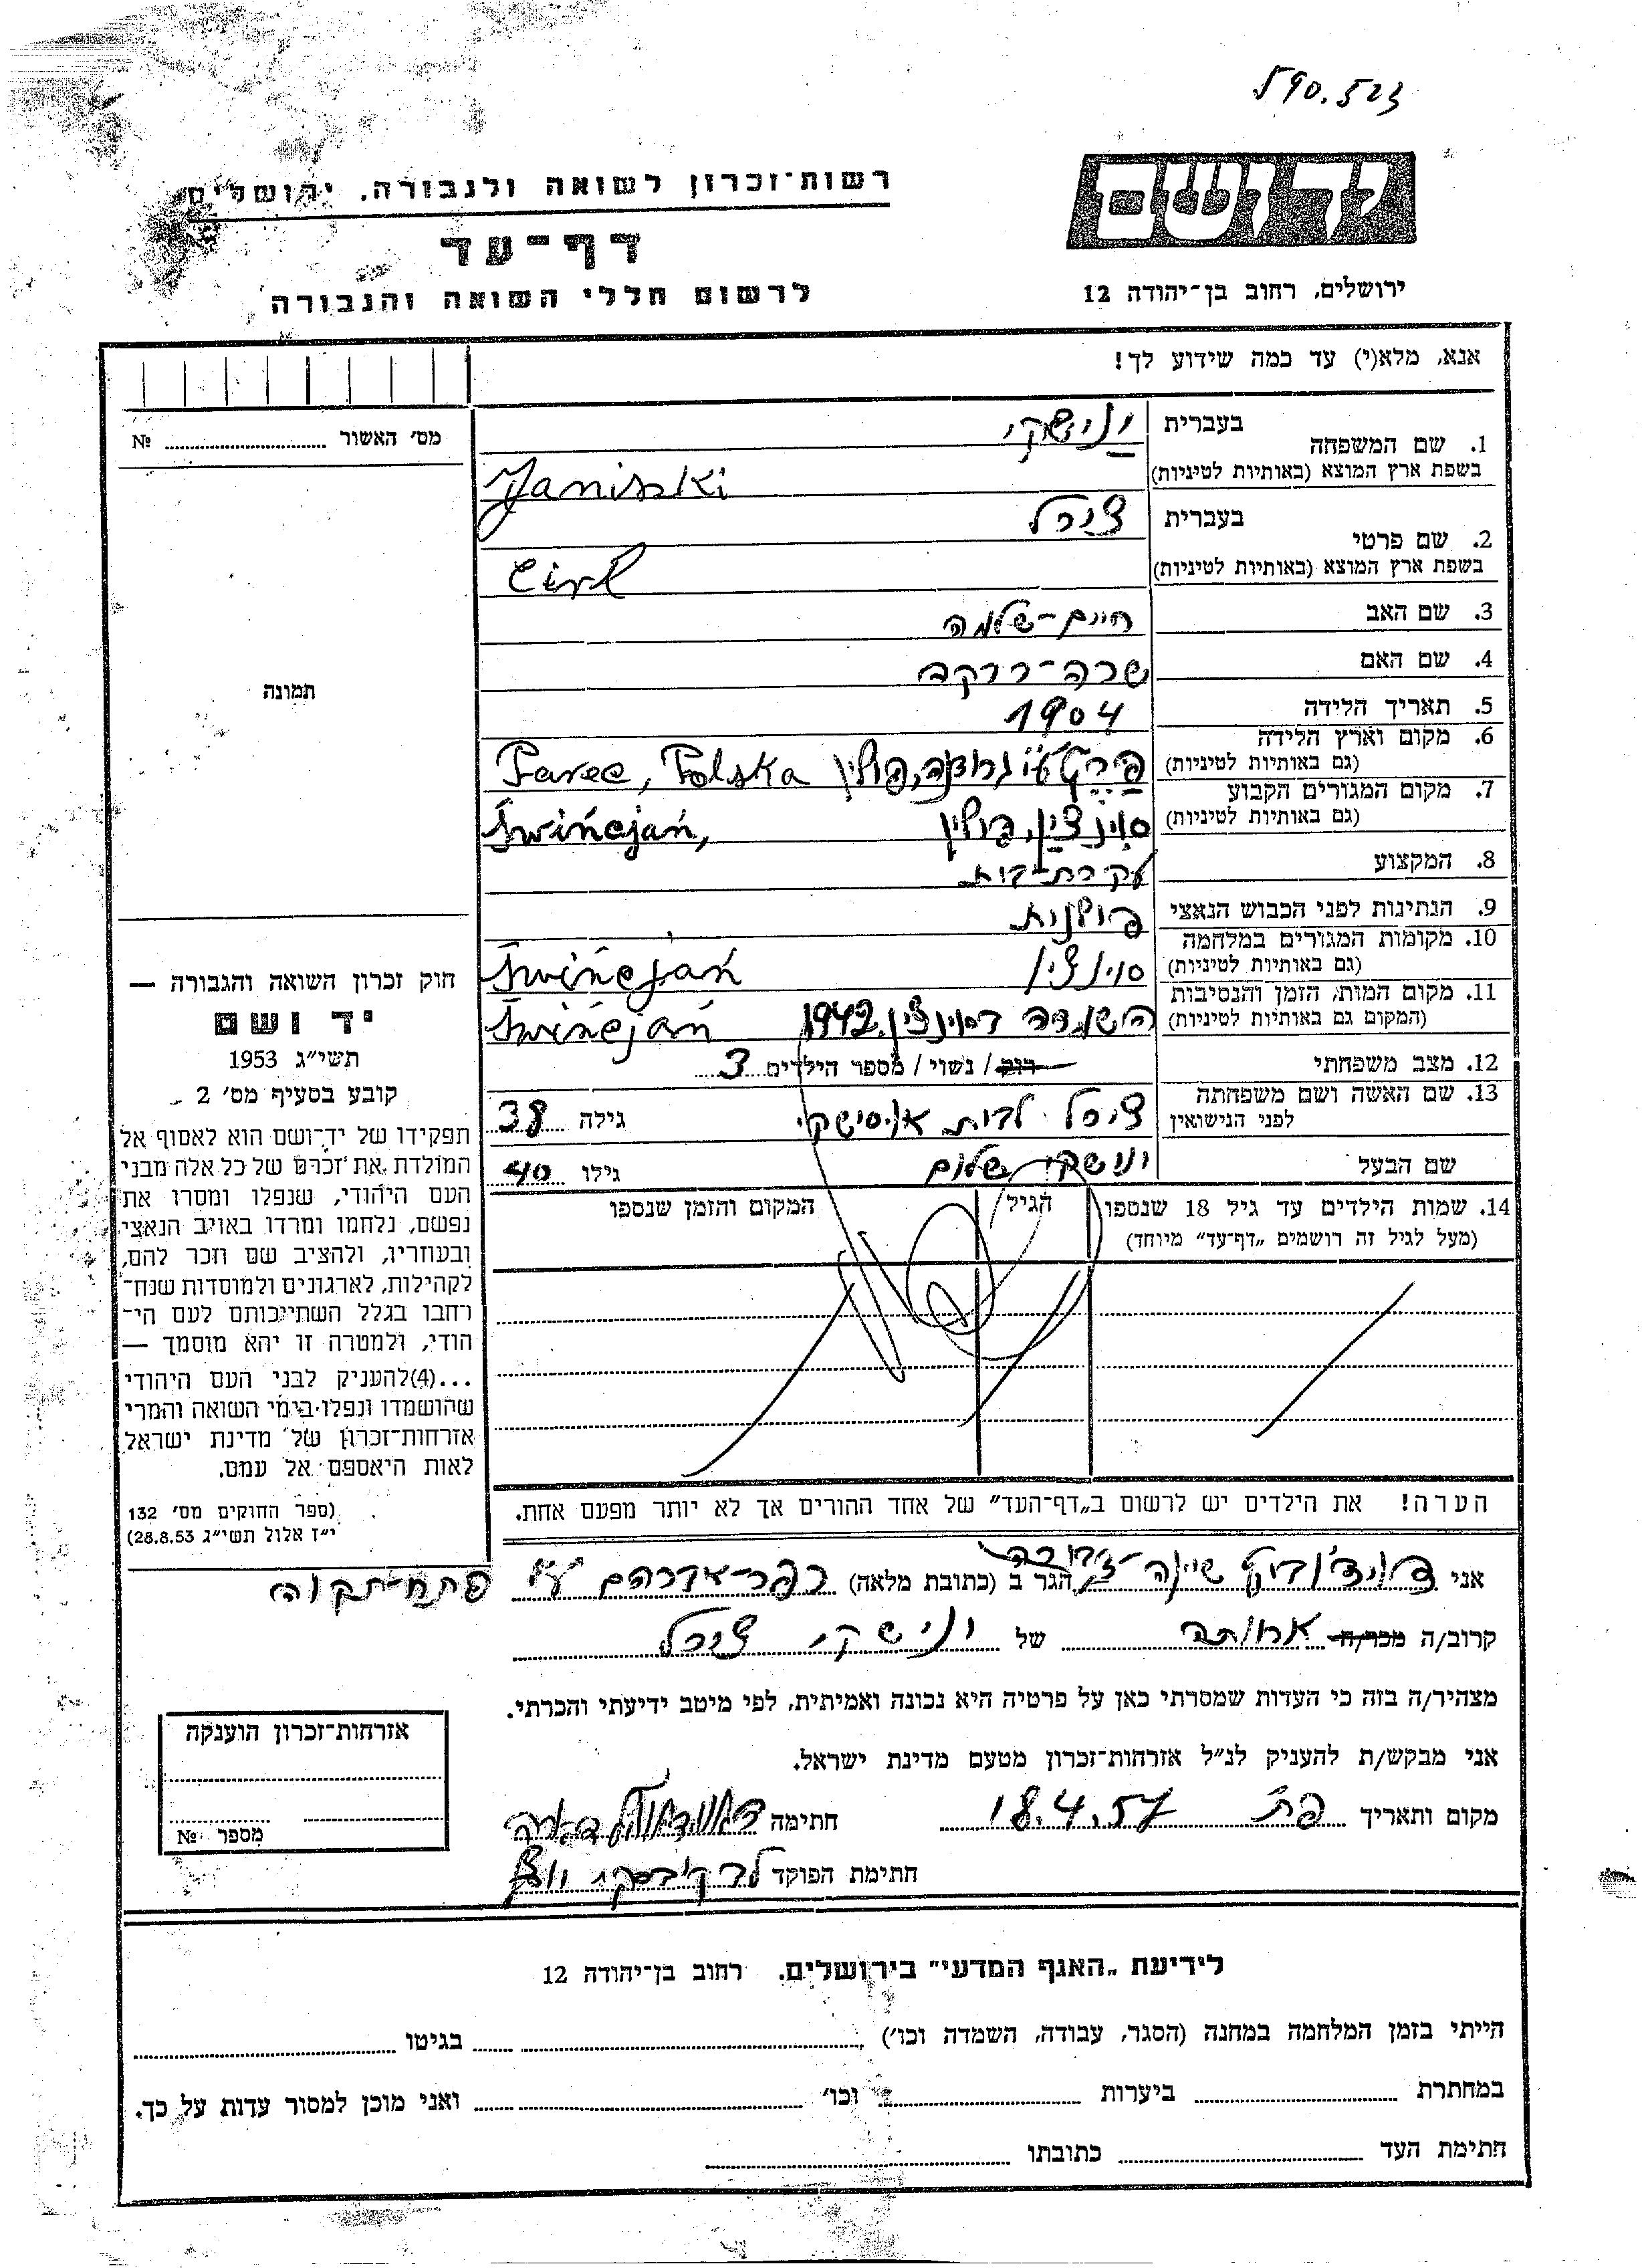 590.523
יד ושם
רשות־זכרון לשואה ולגבורה. ירושלים
דף־עד
לרשום חללי השואה והגבורה
ירושלים, רחוב בן־יהודה 12
אנא, מלא(י) עד כמה שידוע לך!
מס׳ האשור № 
1. שם המשפחה בעברית ינישקי
בשפת ארץ המוצא (באותיות לטיניות) Janiszki
2. שם פרטי בעברית צירל
בשפת ארץ המוצא (באותיות לטיניות) Cirl
3. שם האב חיים-שלמה
4. שם האם שרה-רבקה
תמונה
5. תאריך הלידה 1904
6. מקום וארץ הלידה
(גם באותיות לטיניות) פולין Polska
7. מקום המגורים הקבוע
(גם באותיות לטיניות) סוינצין, פולין Świńcjań,
8. המקצוע עקרת-בית
9. הנתינות לפני הכבוש הנאצי פולנית
10. מקומות המגורים במלחמה
(גם באותיות לטיניות) סוינצין Świńcjań
11. מקום המות, הזמן והנסיבות
(המקום גם באותיות לטיניות) בסוינצין 1942 Świńcjań
12. מצב משפחתי רווק / נשוי / מספר הילדים 3
13. שם האשה ושם משפחתה
לפני הנישואין צירל לבית גילה 38
שם הבעל ינישקי שלום גילו 40
14. שמות הילדים עד גיל 18 שנספו הגיל המקום והזמן שנספו
(מעל לגיל זה רושמים „דף־עד״ מיוחד)
הערה! את הילדים יש לרשום ב„דף־העד״ של אחד ההורים אך לא יותר מפעם אחת.
חוק זכרון השואה והגבורה —
יד ושם
תשי״ג 1953
קובע בסעיף מס׳ 2
תפקידו של יד־ושם הוא לאסוף אל
המולדת את זכרם של כל אלה מבני
העם היהודי, שנפלו ומסרו את
נפשם, נלחמו ומרדו באויב הנאצי
ובעוזריו, ולהציב שם וזכר להם,
לקהילות, לארגונים ולמוסדות שנח־
רחבו בגלל השתייכותם לעם הי־
הודי, ולמטרה זו יהא מוסמך —
...(4) להעניק לבני העם היהודי
שהושמדו ונפלו בימי השואה והמרי
אזרחות־זכרון של מדינת ישראל
לאות היאספם אל עמם.
(ספר החוקים מס׳ 132
י״ז אלול תשי״ג 28.8.53)
אני שיינה הגר ב (כתובת מלאה) כפר-אברהם ע״י פתח-תקוה
קרוב/ה מכר/ה אחותה של ינישקי צירל
מצהיר/ה בזה כי העדות שמסרתי כאן על פרטיה היא נכונה ואמיתית, לפי מיטב ידיעתי והכרתי.
אני מבקש/ת להעניק לנ״ל אזרחות־זכרון מטעם מדינת ישראל.
מקום ותאריך פת 18.4.57 חתימה
חתימת הפוקד
אזרחות־זכרון הוענקה
מספר №
לידיעת „האגף המדעי״ בירושלים. רחוב בן־יהודה 12
הייתי בזמן המלחמה במחנה (הסגר, עבודה, השמדה וכו׳) בגיטו
במחתרת ביערות וכו׳ ואני מוכן למסור עדות על כך.
חתימת העד כתובתו